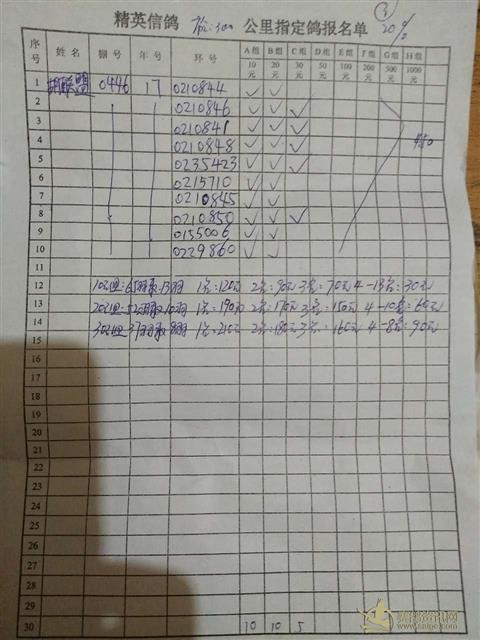 ③
精英信鸽 300 公里指定鸽报名单 20%
序号 姓名 棚号 年号 环号 A组 B组 C组 D组 E组 F组 G组 H组
10元 20元 30元 50元 100元 200元 500元 1000元
1 联盟 0446 17 0210844 ✓ ✓
2 0210846 ✓ ✓ ✓
3 0210841 ✓ ✓ ✓
4 0210848 ✓ ✓ ✓
5 0235423 ✓ ✓ ✓
6 0215710 ✓ ✓
7 0210845 ✓ ✓
8 0210850 ✓ ✓ ✓
9 0155006 ✓ ✓
10 0229860 ✓ ✓
12 10元组:65羽取13羽 1名:120元 2名:90元 3名:70元 4-13名:30元
13 20元组:52羽取10羽 1名:190元 2名:170元 3名:150元 4-10名:60元
14 30元组:37羽取8羽 1名:210元 2名:180元 3名:160元 4-8名:90元
15
16
17
18
19
20
21
22
23
24
25
26
27
28
29
30 10 10 5